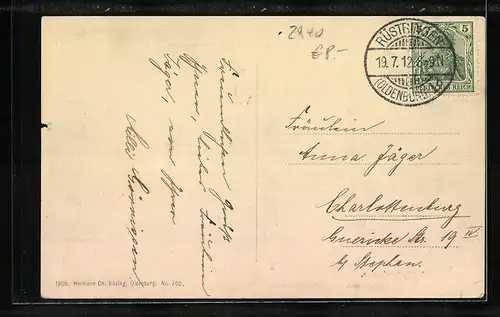 2940
EP.-
RÜSTRINGEN
19.7.12.8-9N
(OLDENBURG)
5
REICH
Freundlichen Gruß
Ihnen, liebes Fräulein
Jäger, von Ihrer
Fräulein
Anna Jäger
Charlottenburg
Guericke Str. 19 IV
b/ Stephan.
1909, Hermann Ch. Büsing, Oldenburg. No. 762.